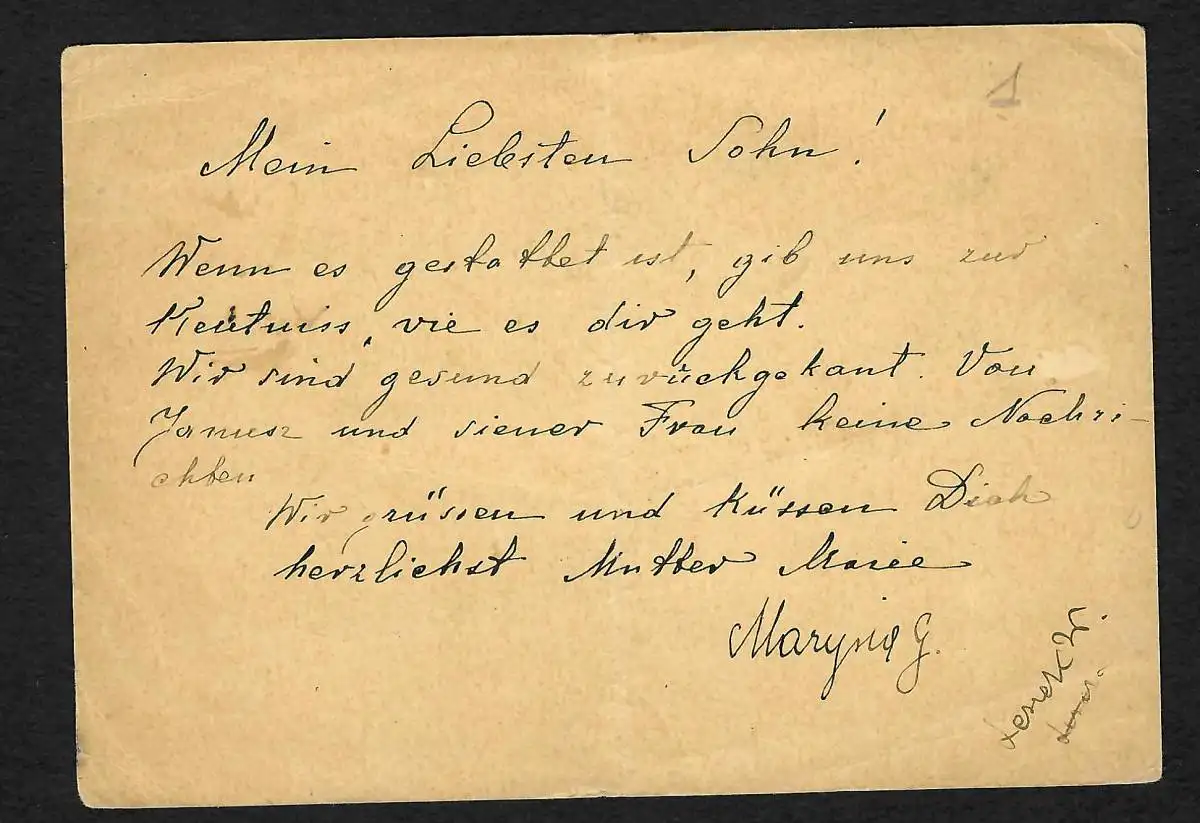 1
Mein Liebsten Sohn!
Wenn es gestattet ist, gib uns zur
Kentniss, vie es dir geht.
Wir sind gesund zurückgekant. Von
Janusz und siener Frau keine Nachri-
chten
Wir grüssen und küssen Dich
herzlichst Mutter Marie
Marysia G.